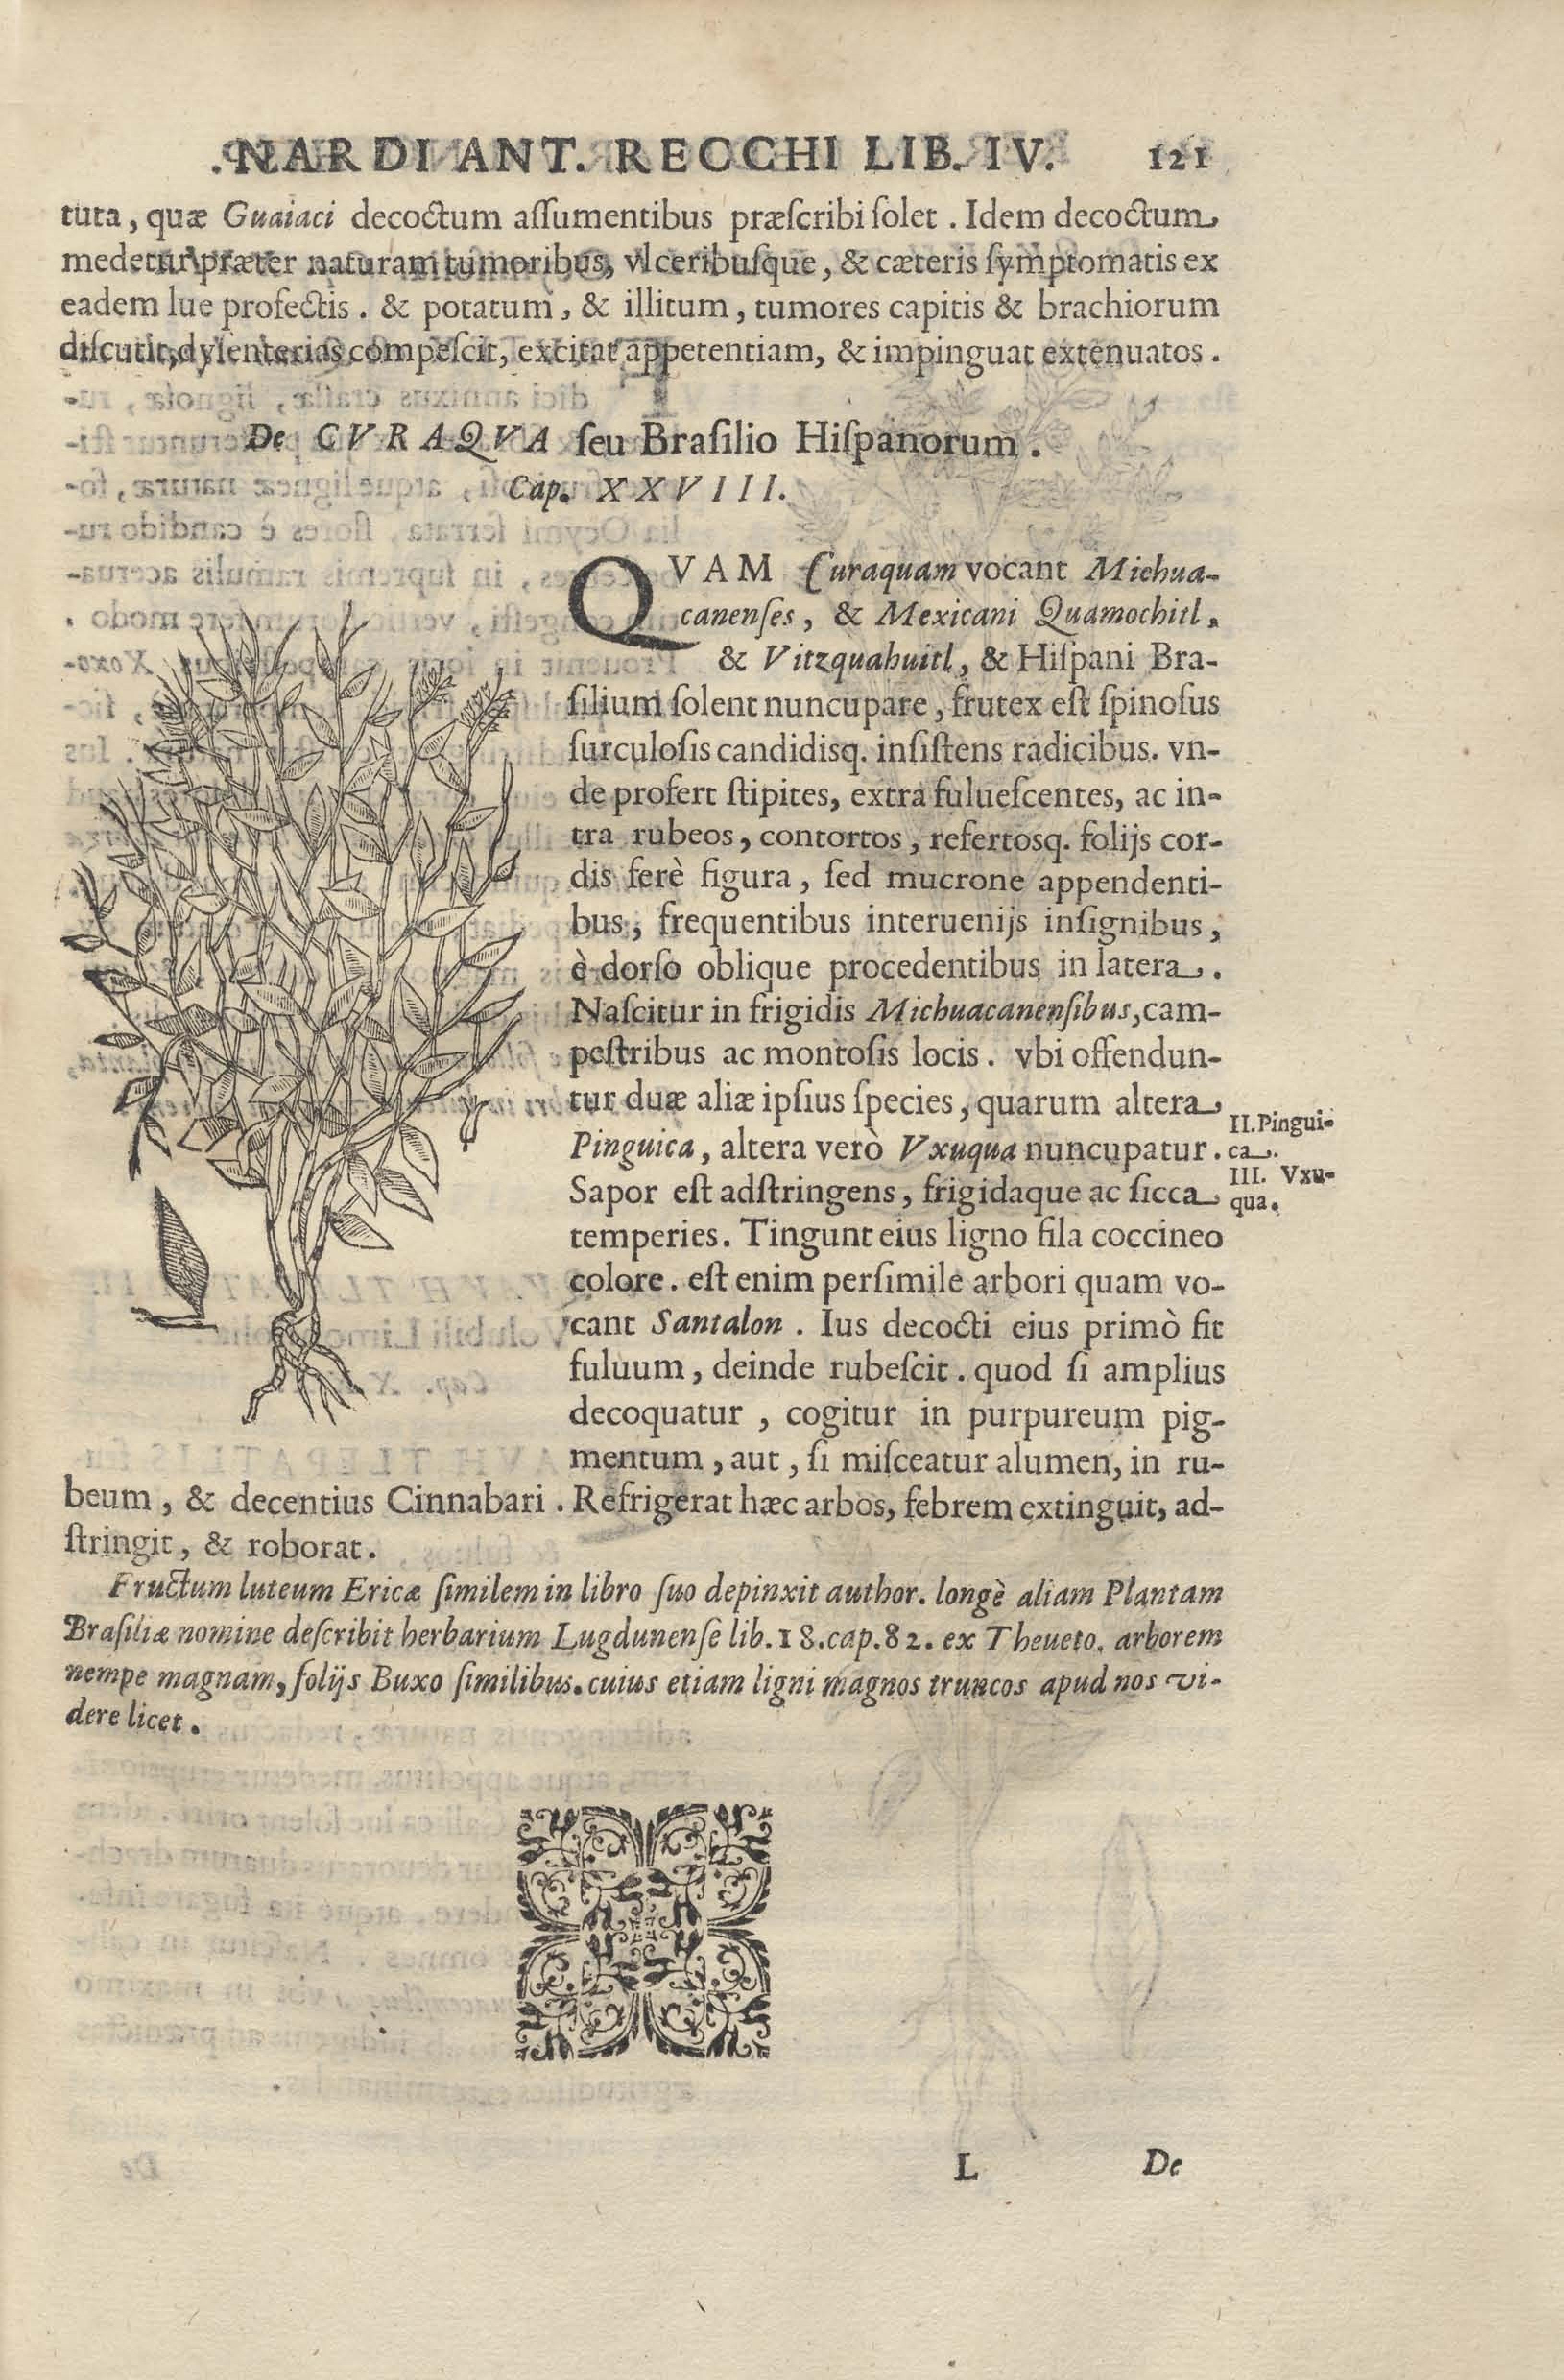 NARDI ANT. RECCHI LIB. IV. 121
tuta, quæ Guaiaci decoctum aſſumentibus præſcribi ſolet. Idem decoctum
medetur præter naturam tumoribus, vlceribuſque, & cæteris ſymptomatis ex
eadem lue profectis. & potatum, & illitum, tumores capitis & brachiorum
diſcutit, dyſenterias compeſcit, excitat appetentiam, & impinguat extenuatos.
De CVRAQVA ſeu Braſilio Hiſpanorum.
Cap. XXVIII.
QVAM Curaquam vocant Michua-
canenſes, & Mexicani Quamochitl,
& Vitzquahuitl, & Hiſpani Bra-
ſilium ſolent nuncupare, frutex eſt ſpinoſus
ſurculoſis candidisq. inſiſtens radicibus. vn-
de profert ſtipites, extra fulueſcentes, ac in-
tra rubeos, contortos, refertosq. folijs cor-
dis ferè figura, ſed mucrone appendenti-
bus, frequentibus interuenijs inſignibus,
è dorſo oblique procedentibus in latera.
Naſcitur in frigidis Michuacanenſibus, cam-
peſtribus ac montoſis locis. vbi offendun-
tur duæ aliæ ipſius ſpecies, quarum altera
II. Pingui-
Pinguica, altera verò Vxuqua nuncupatur.
ca.
III. Vxu-
Sapor eſt adſtringens, frigidaque ac ſicca
qua.
temperies. Tingunt eius ligno fila coccineo
colore. eſt enim perſimile arbori quam vo-
cant Santalon. Ius decocti eius primò fit
fuluum, deinde rubeſcit. quod ſi amplius
decoquatur, cogitur in purpureum pig-
mentum, aut, ſi miſceatur alumen, in ru-
beum, & decentius Cinnabari. Refrigerat hæc arbos, febrem extinguit, ad-
ſtringit, & roborat.
Fructum luteum Ericæ ſimilem in libro ſuo depinxit author. longè aliam Plantam
Braſiliæ nomine deſcribit herbarium Lugdunenſe lib. 18. cap. 82. ex Theueto. arborem
nempe magnam, folijs Buxo ſimilibus. cuius etiam ligni magnos truncos apud nos vi-
dere licet.
L De